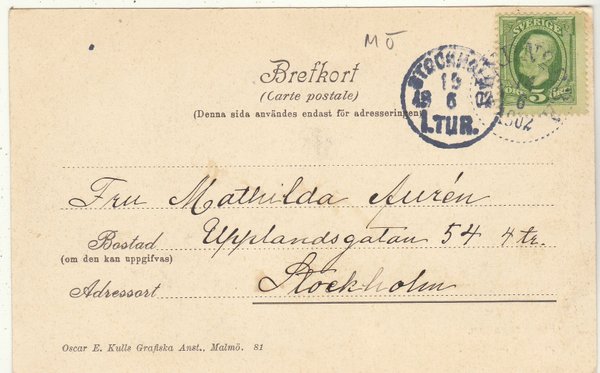 MÖ
SVERIGE
5
STOCKHOLM
19
6
1.TUR.
6
1902
Brefkort
(Carte postale)
(Denna sida användes endast för adresseringen)
Fru Mathilda Aurén
Bostad Upplandsgatan 54 4 tr.
(om den kan uppgifvas)
Adressort Stockholm
Oscar E. Kulls Grafiska Anst., Malmö. 81